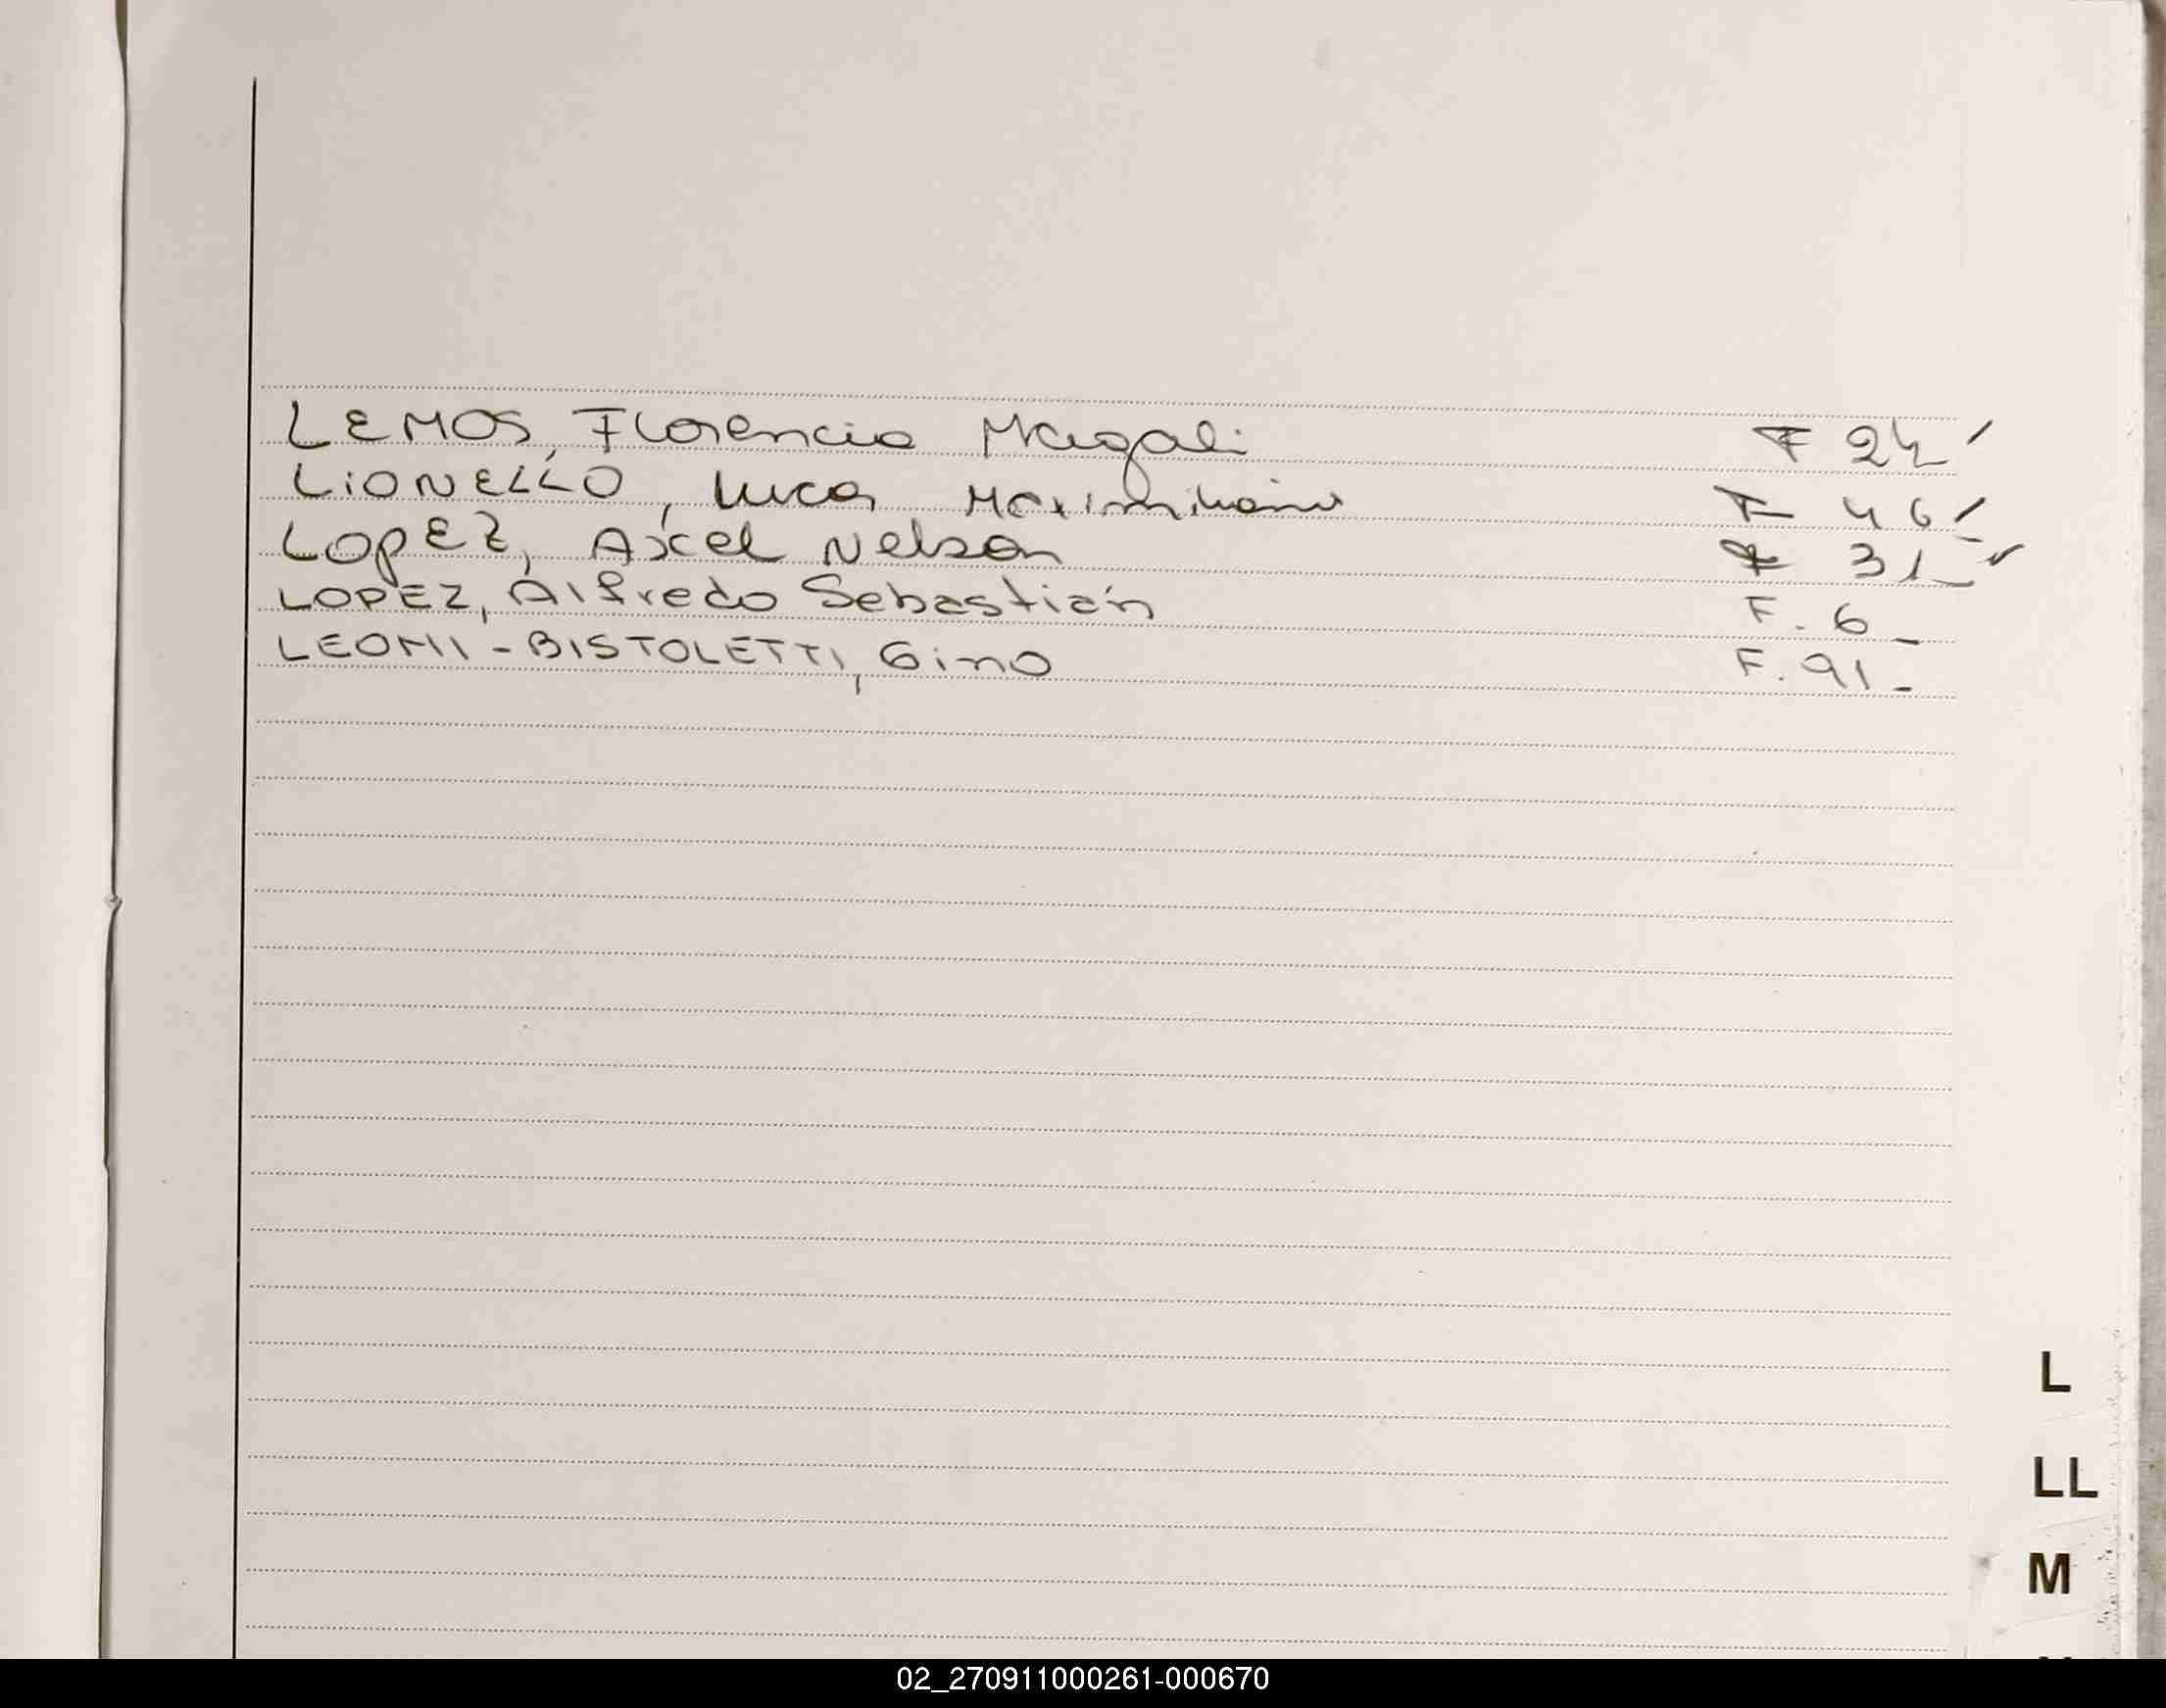 LEMOS, Florencia Magali F 24
LIONELLO, Luca Maximiliano F 46
LOPEZ, Axel Nelson F 31
LOPEZ, Alfredo Sebastián F. 6
LEOMI-BISTOLETTI, Gino F. 91
L
LL
M
02_270911000261-000670